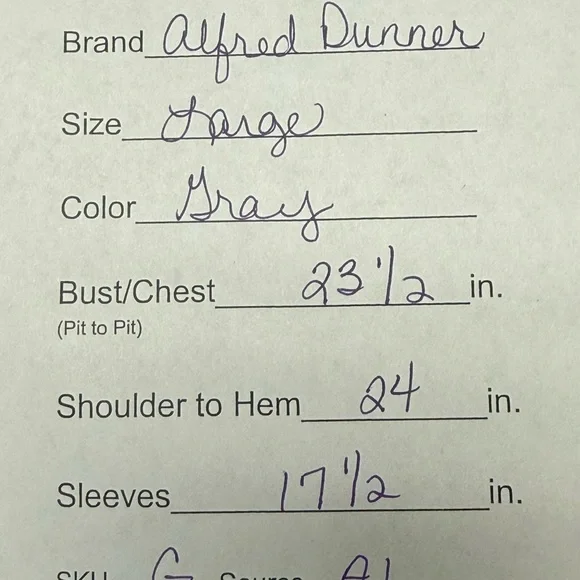 Brand Alfred Dunner
Size Large
Color Gray
Bust/Chest 23 1/2 in.
(Pit to Pit)
Shoulder to Hem 24 in.
Sleeves 17 1/2 in.
SKU G